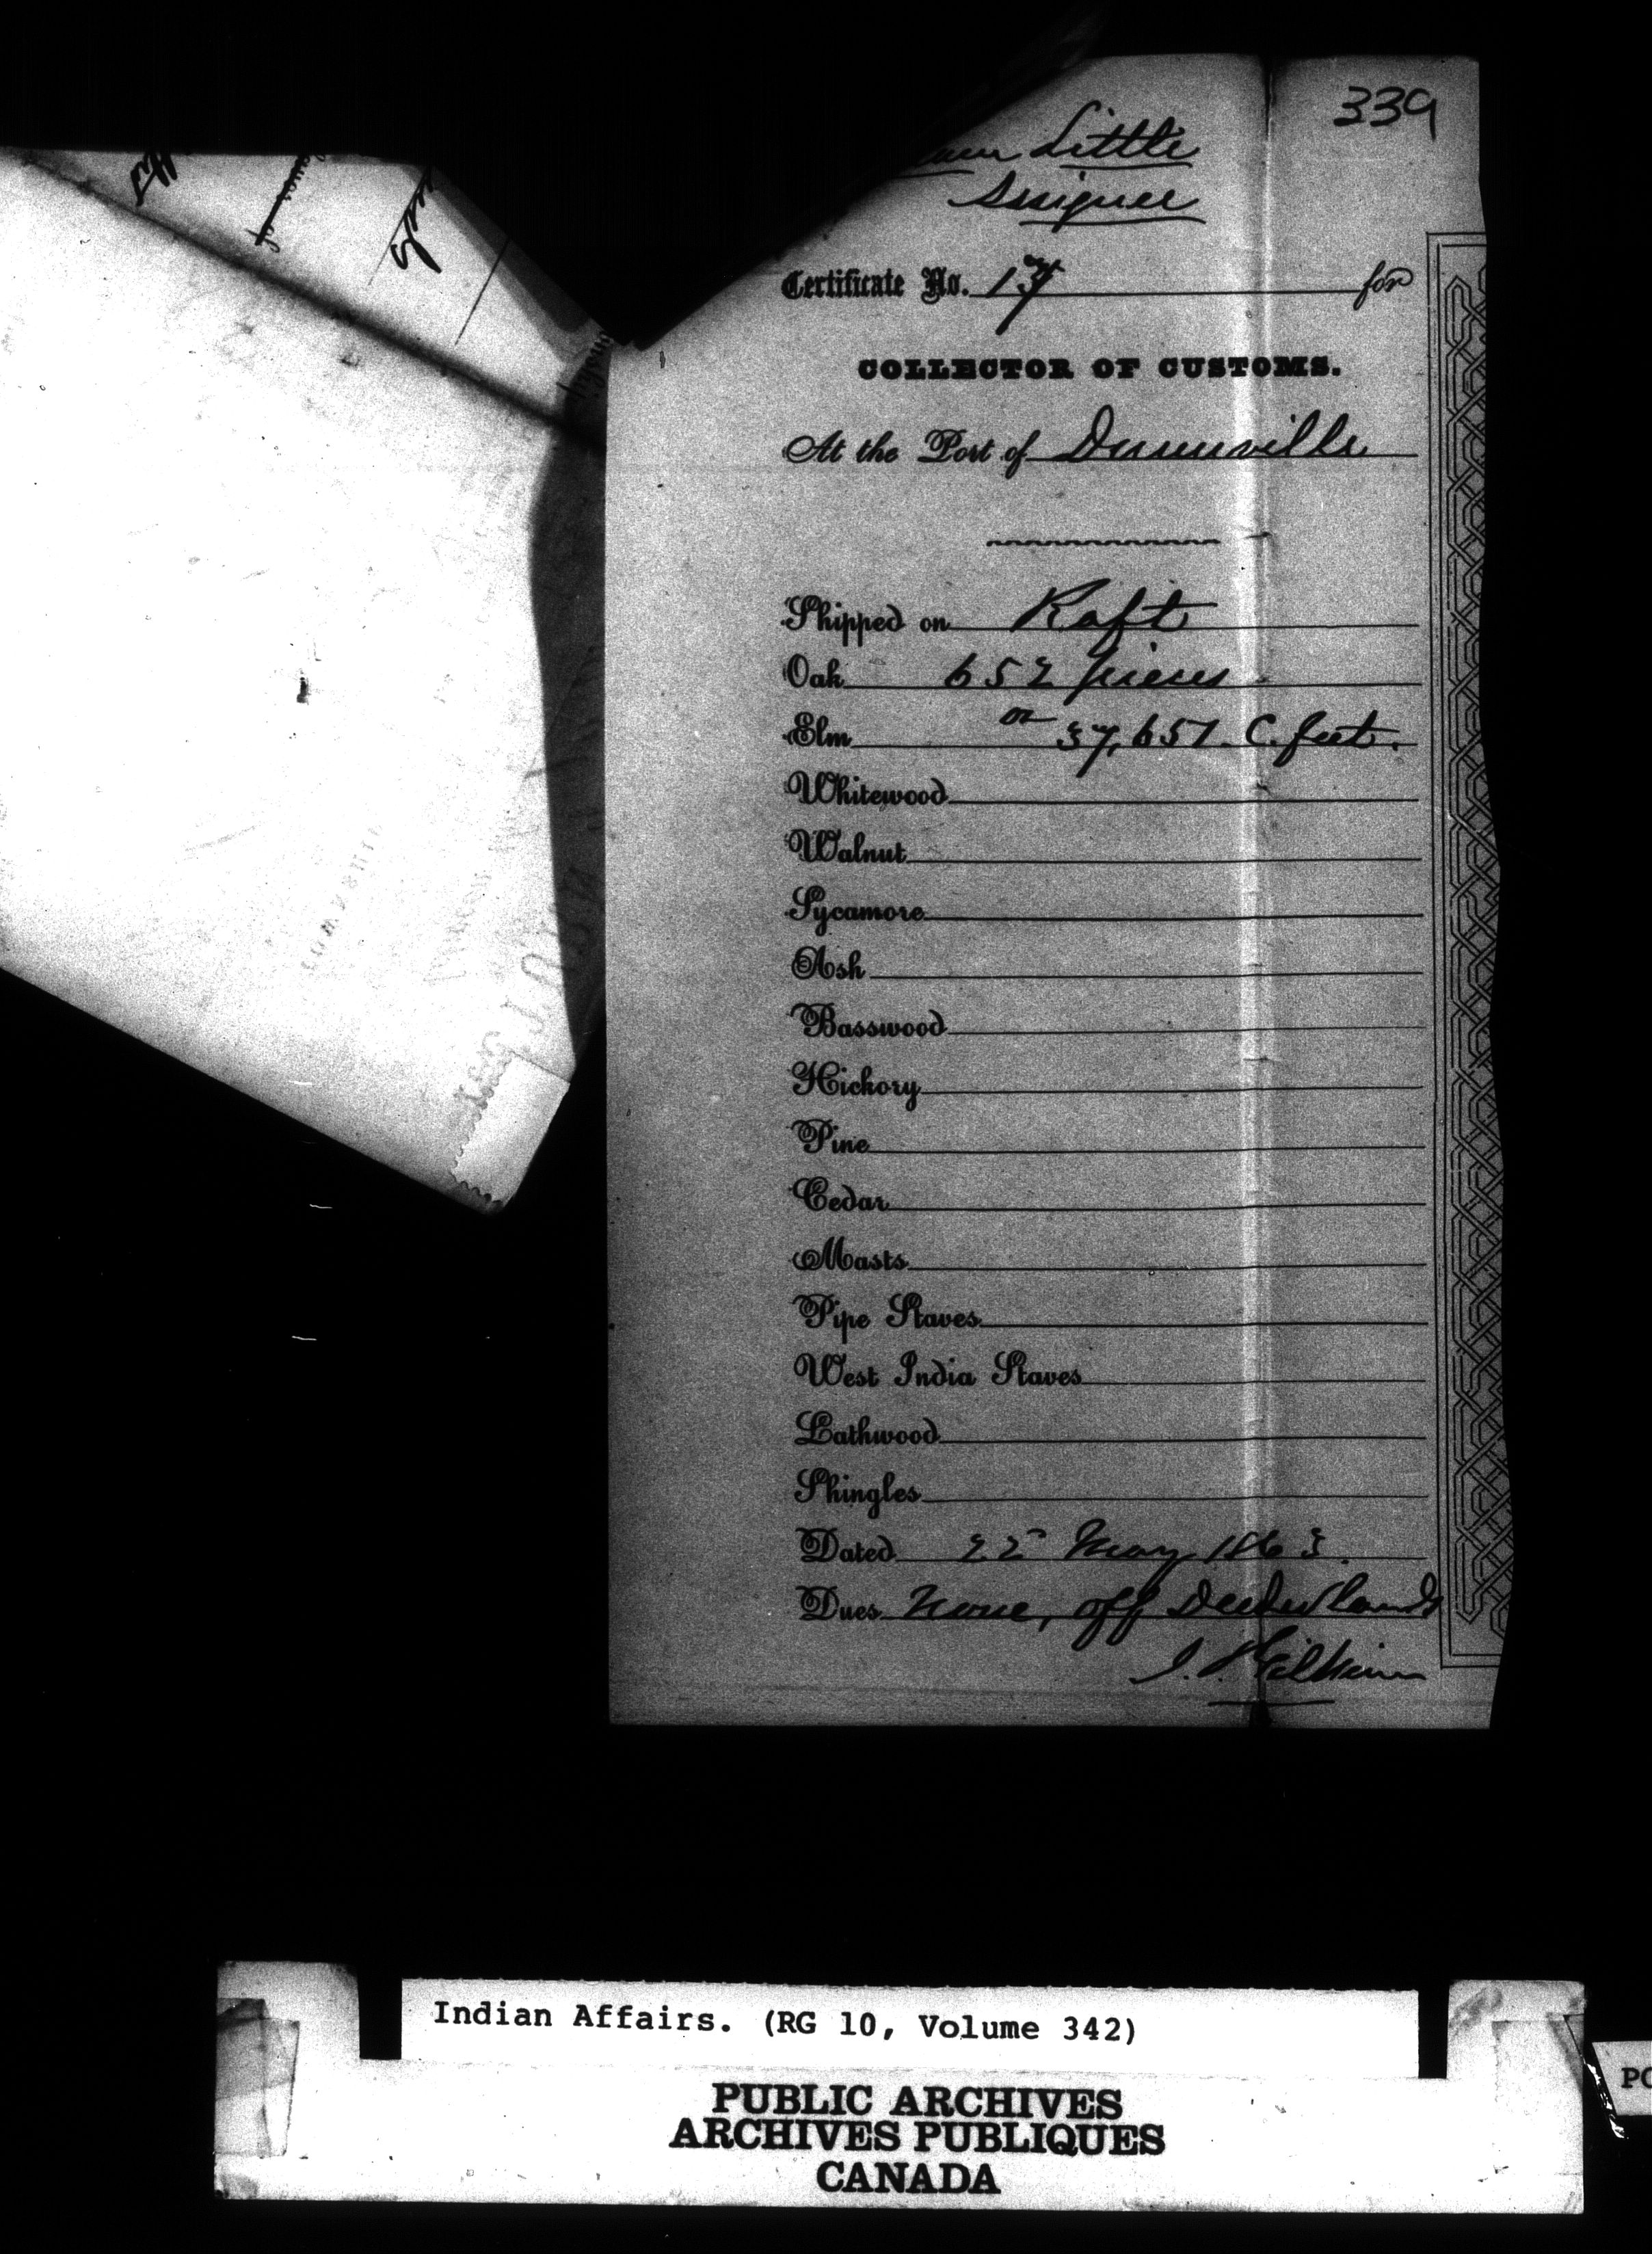 339
Little
Assignee
Certificate No. 17 for
COLLECTOR OF CUSTOMS.
At the Port of Dunnville
Shipped on Raft
Oak 652 pieces
Elm or 37,651 C. feet.
Whitewood
Walnut
Sycamore
Ash
Basswood
Hickory
Pine
Cedar
Masts
Pipe Staves
West India Staves
Lathwood
Shingles
Dated 22d May 1863.
Dues None, off Deeded Lands
J. Gilkison
Indian Affairs. (RG 10, Volume 342)
PUBLIC ARCHIVES
ARCHIVES PUBLIQUES
CANADA
PO